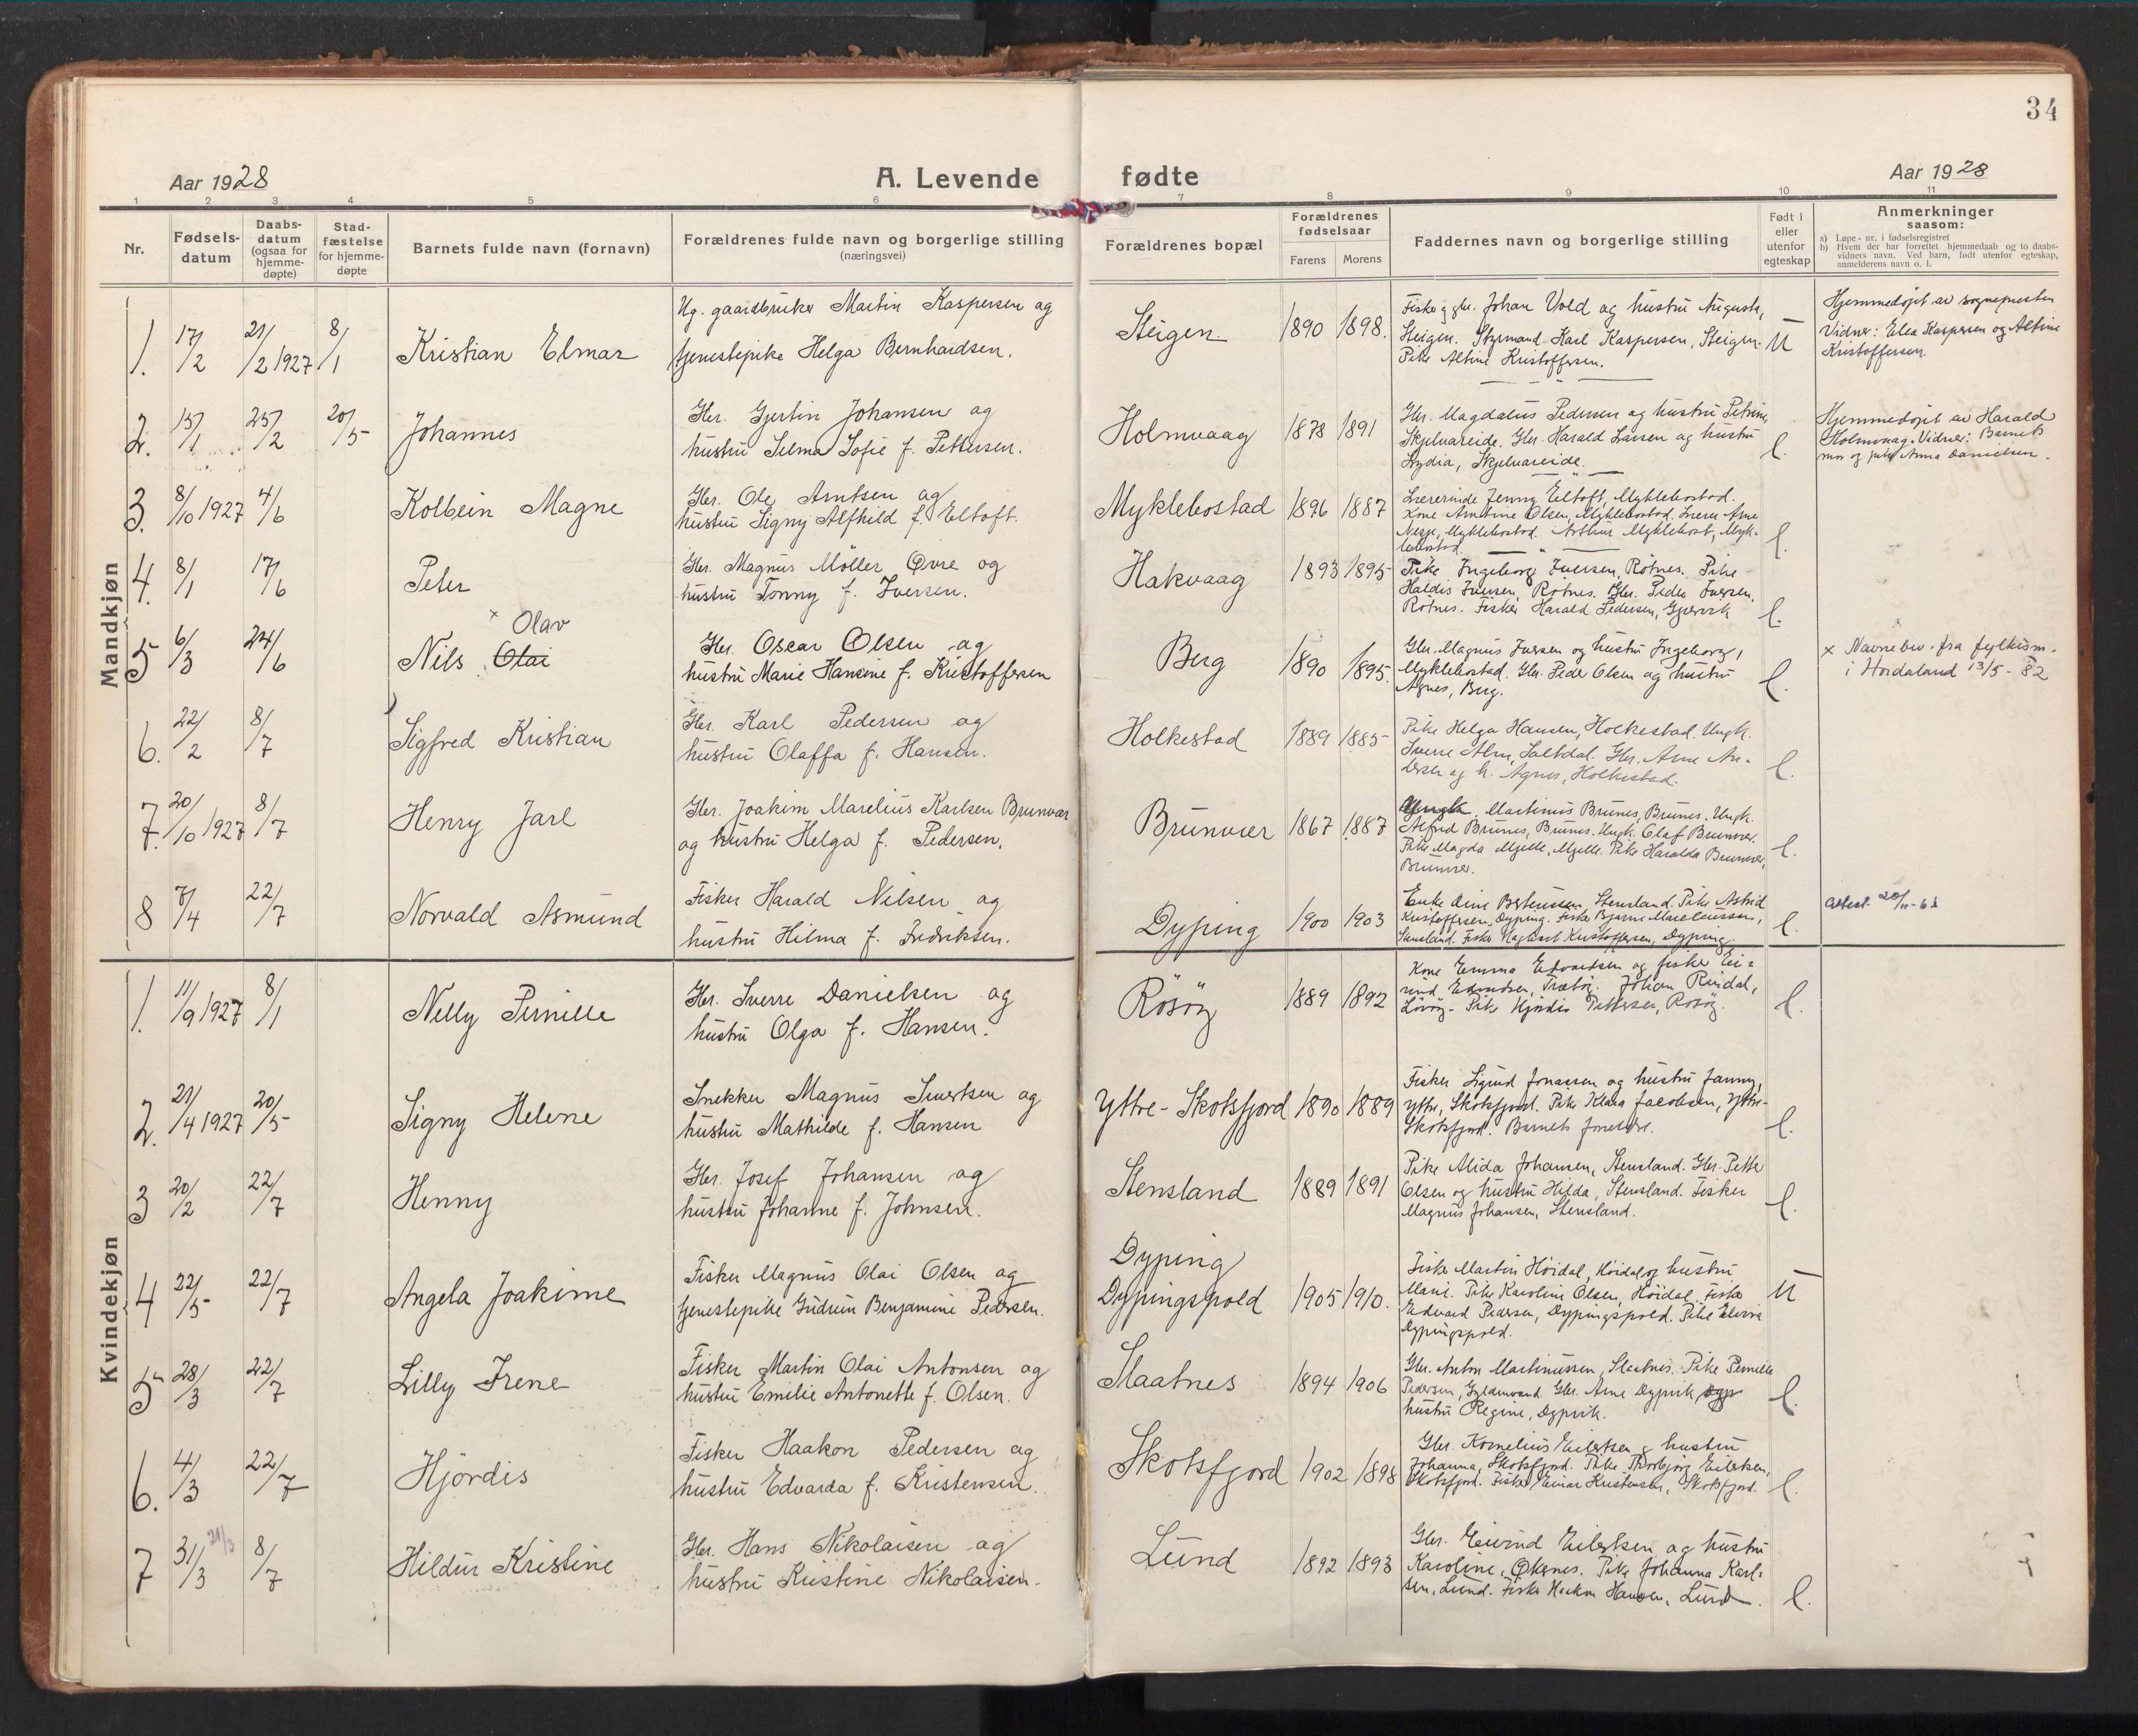 34
Aar 1928
A. Levende fødte
Aar 1928
1 2 3 4 5 6 7 8 9 10 11
Nr.
Fødsels-
datum
Daabs-
datum
(ogsaa for
hjemme-
døpte)
Stad-
fæstelse
for hjemme-
døpte
Barnets fulde navn (fornavn)
Forældrenes fulde navn og borgerlige stilling
(næringsvei)
Forældrenes bopæl
Forældrenes
fødselsaar
Farens Morens
Faddernes navn og borgerlige stilling
Født i
eller
utenfor
egteskap
Anmerkninger
saasom:
a) Løpe-nr. i fødselsregistret
b) Hvem der har forrettet hjemmedaab og to daabs-
vidners navn. Ved barn, født utenfor egteskap,
anmelderens navn o. l.
Mandkjøn
1. 17/2 21/2 1927 8/1 Kristian Elmar
Ug. gaardbruker Martin Kaspersen og
tjenestepike Helga Bernhardsen.
Steigen 1890 1898.
Fisker og gbr. Johan Vold og hustru Augusta,
Steigen. Styrmand Karl Kaspersen, Steigen.
Pike Altine Kristoffersen.
U
Hjemmedøpt av sognepresten
Vidner: Elea Kaspersen og Altine
Kristoffersen.
2. 15/1 25/2 20/5 Johannes
Gbr. Gjertin Johansen og
hustru Selma Sofie f. Pettersen.
Holmvaag 1878 1891
Gbr. Magdalus Pedersen og hustru Petrine,
Skjelvareide. Gbr. Harald Larsen og hustru
Lydia, Skjelvareide.
l.
Hjemmedøpt av Harald
Holmvaag. Vidner: Barnets
mor og pike Anna Danielsen.
3. 8/10 1927 4/6 Kolbein Magne
Gbr. Ole Arntsen og
hustru Signy Alfhild f. Eltoft.
Myklebostad 1896 1887
Lærerinde Jenny Eltoft, Myklebostad.
Kone Arntine Olsen, Myklebostad. Lærer Arne
Nesje, Myklebostad. Arthur Myklebost, Myk-
lebostad.
l.
4. 8/1 17/6 Peter
Gbr. Magnus Möller Øvre og
hustru Tonny f. Iversen.
Hakvaag 1893 1895
Pike Ingeborg Iversen, Rötnes. Pike
Haldis Iversen, Rötnes. Gbr. Peder Iversen,
Rötnes. Fisker Harald Pedersen, Gjærvik
l.
5 6/3 24/6 Nils Olai × Olav
Gbr. Oscar Olsen og
hustru Marie Hansine f. Kristoffersen
Berg 1890 1895.
Gbr. Magnus Iversen og hustru Ingeborg,
Myklebostad. Gbr. Peder Olsen og hustru
Agnes, Berg.
l.
× Navnebev. fra fylkesm.
i Hordaland 13/5-82
6. 22/2 8/7 Sigfred Kristian
Gbr. Karl Pedersen og
hustru Olaffa f. Hansen.
Holkestad 1889 1885
Pike Helga Hansen, Holkestad. Ungk.
Sverre Alm, Saltdal. Gbr. Arne An-
dersen og h. Agnes, Holkestad.
l.
7. 20/10 1927 8/7 Henry Jarl
Gbr. Joakim Marelius Karlsen Brunvær
og hustru Helga f. Pedersen.
Brunvær 1867 1887
Ungk. Martinus Brunes, Brunes. Ungk.
Alfred Brunes, Brunes. Ungk. Olaf Brunvær.
Pike Magda Mjelle, Mjelle. Pike Haralda Brunvær,
Brunvær.
l.
8 7/4 22/7 Norvald Asmund
Fisker Harald Nilsen og
hustru Hilma f. Fredriksen.
Dyping 1900 1903
Enke Stensland. Pike Astrid
Kristoffersen, Dyping. Fisker Bjarne Marelinussen,
Stensland. Fisker Kristoffersen, Dyping.
l.
Attest. 20/11-68
Kvindekjøn
1. 11/9 1927 8/1 Nelly Pernille
Gbr. Sverre Danielsen og
hustru Olga f. Hansen.
Rösöy 1889 1892
Kone Emma Edvardsen og fisker Ei-
vind Edvardsen, Johan Reidal,
Lövöy. Pike Hjördis Pettersen, Rösöy.
l.
2. 21/4 1927 20/5 Signy Helene
Snekker Magnus Sivertsen og
hustru Mathilde f. Hansen
Yttre-Skotsfjord 1890 1889
Fisker Sigurd Jonassen og hustru Fanny,
Yttre, Skotsfjord. Pike Klara Jacobsen, Yttre-
Skotsfjord. Barnets foreldre.
l.
3 20/2 22/7 Henny
Gbr. Josef Johansen og
hustru Johanne f. Johnsen.
Stensland 1889 1891
Pike Alida Johansen, Stensland. Gbr. Petter
Olsen og hustru Hilda, Stensland. Fisker
Magnus Johansen, Stensland.
l.
4 22/5 22/7 Angela Joakime
Fisker Magnus Olai Olsen og
tjenestepike Gudrun Benjamine Pedersen.
Dyping
Dypingspold 1905 1910.
Fisker Martin Höidal, Höidal og hustru
Marie. Pike Karoline Olsen, Höidal. Fisker
Edvard Pedersen, Dypingspold. Pike Elvira
Dypingspold.
U
5 28/3 22/7 Lilly Irene
Fisker Martin Olai Antonsen og
hustru Emilie Antonette f. Olsen.
Slaatnes 1894 1906
Gbr. Anton Martinussen, Slaatnes. Pike Pernille
Pedersen, Gyldenvand. Gbr. Arne Dypvik
hustru Regine, Dypvik.
l.
6. 4/3 22/7 Hjördis
Fisker Haakon Pedersen og
hustru Edvarda f. Kristensen.
Skotsfjord 1902 1898
Gbr. Kornelius Eilertsen og hustru
Johanna, Skotsfjord. Pike Thorbjörg Eilertsen,
Skotsfjord. Fisker Einar Kristensen, Skotsfjord.
l.
7 31/3 21/3 8/7 Hildur Kristine
Gbr. Hans Nikolaisen og
hustru Kristine Nikolaisen.
Lund 1892 1893
Gbr. Eivind Eilertsen og hustru
Karoline, Økenes. Pike Johanna Karl-
sen, Lund. Fisker Haakon Hansen, Lund.
l.